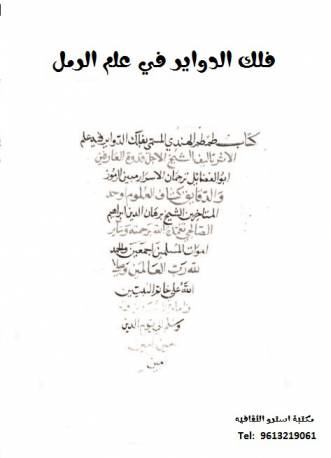 فلك الدواير في علم الرمل
كتاب طمطم الهندي المسمى بفلك الدواير فيه علم
الاشر تاليف الشيخ الاجل قدوة العارفين
ابو الفضايل ترجمان الاسرار مبين الرموز
والدقايق كشاف العلوم اوحد
المتاخرين الشيخ برهان الدين ابراهيم
الصالحي تغمده الله برحمته وساير
اموات المسلمين اجمعين والحمد
لله رب العالمين وصلا
الله على خاتم النبيين
وسلم الى يوم الدين
امين امين
مين
مكتبة استدو الثقافيه
Tel: 9613219061